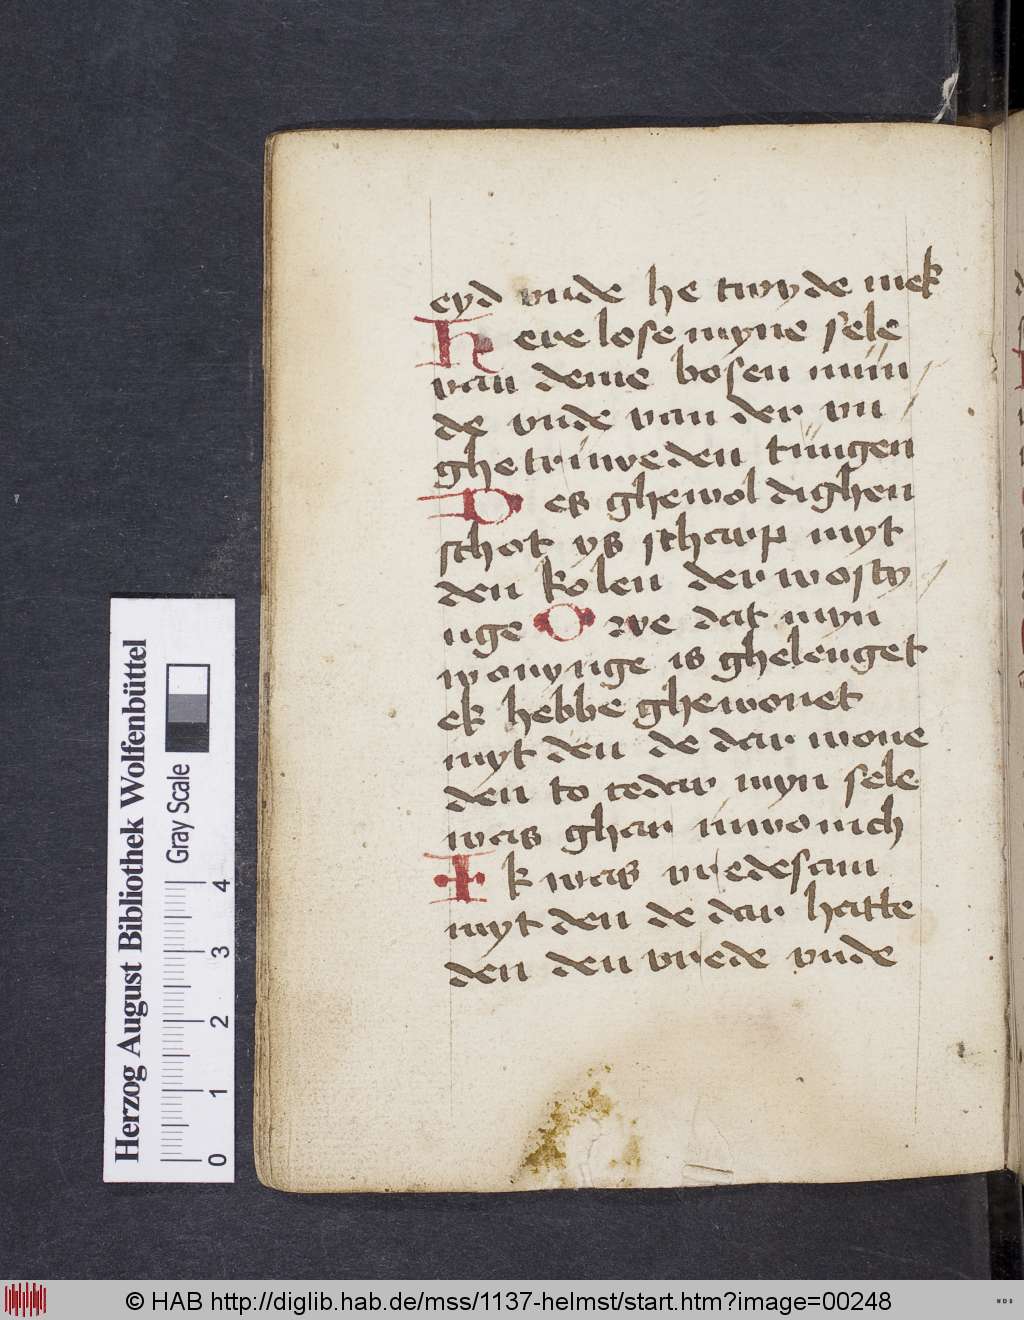 eyd vnde he twyde mek
Here lose myne sele
van deme bosen mun
de vnde van der vn
ghetruweden tungen
Des ghewoldighen
schot ys scharp myt
den kolen der wosty
nge Owe dat myn
wonynge is ghelenget
ek hebbe ghewonet
myt den de dar wone
den to cedar myn sele
was ghar inwonich
Ik was vredesam
myt den de dar hatte
den den vrede vnde
Herzog August Bibliothek Wolfenbüttel
Gray Scale
0 1 2 3 4
© HAB http://diglib.hab.de/mss/1137-helmst/start.htm?image=00248